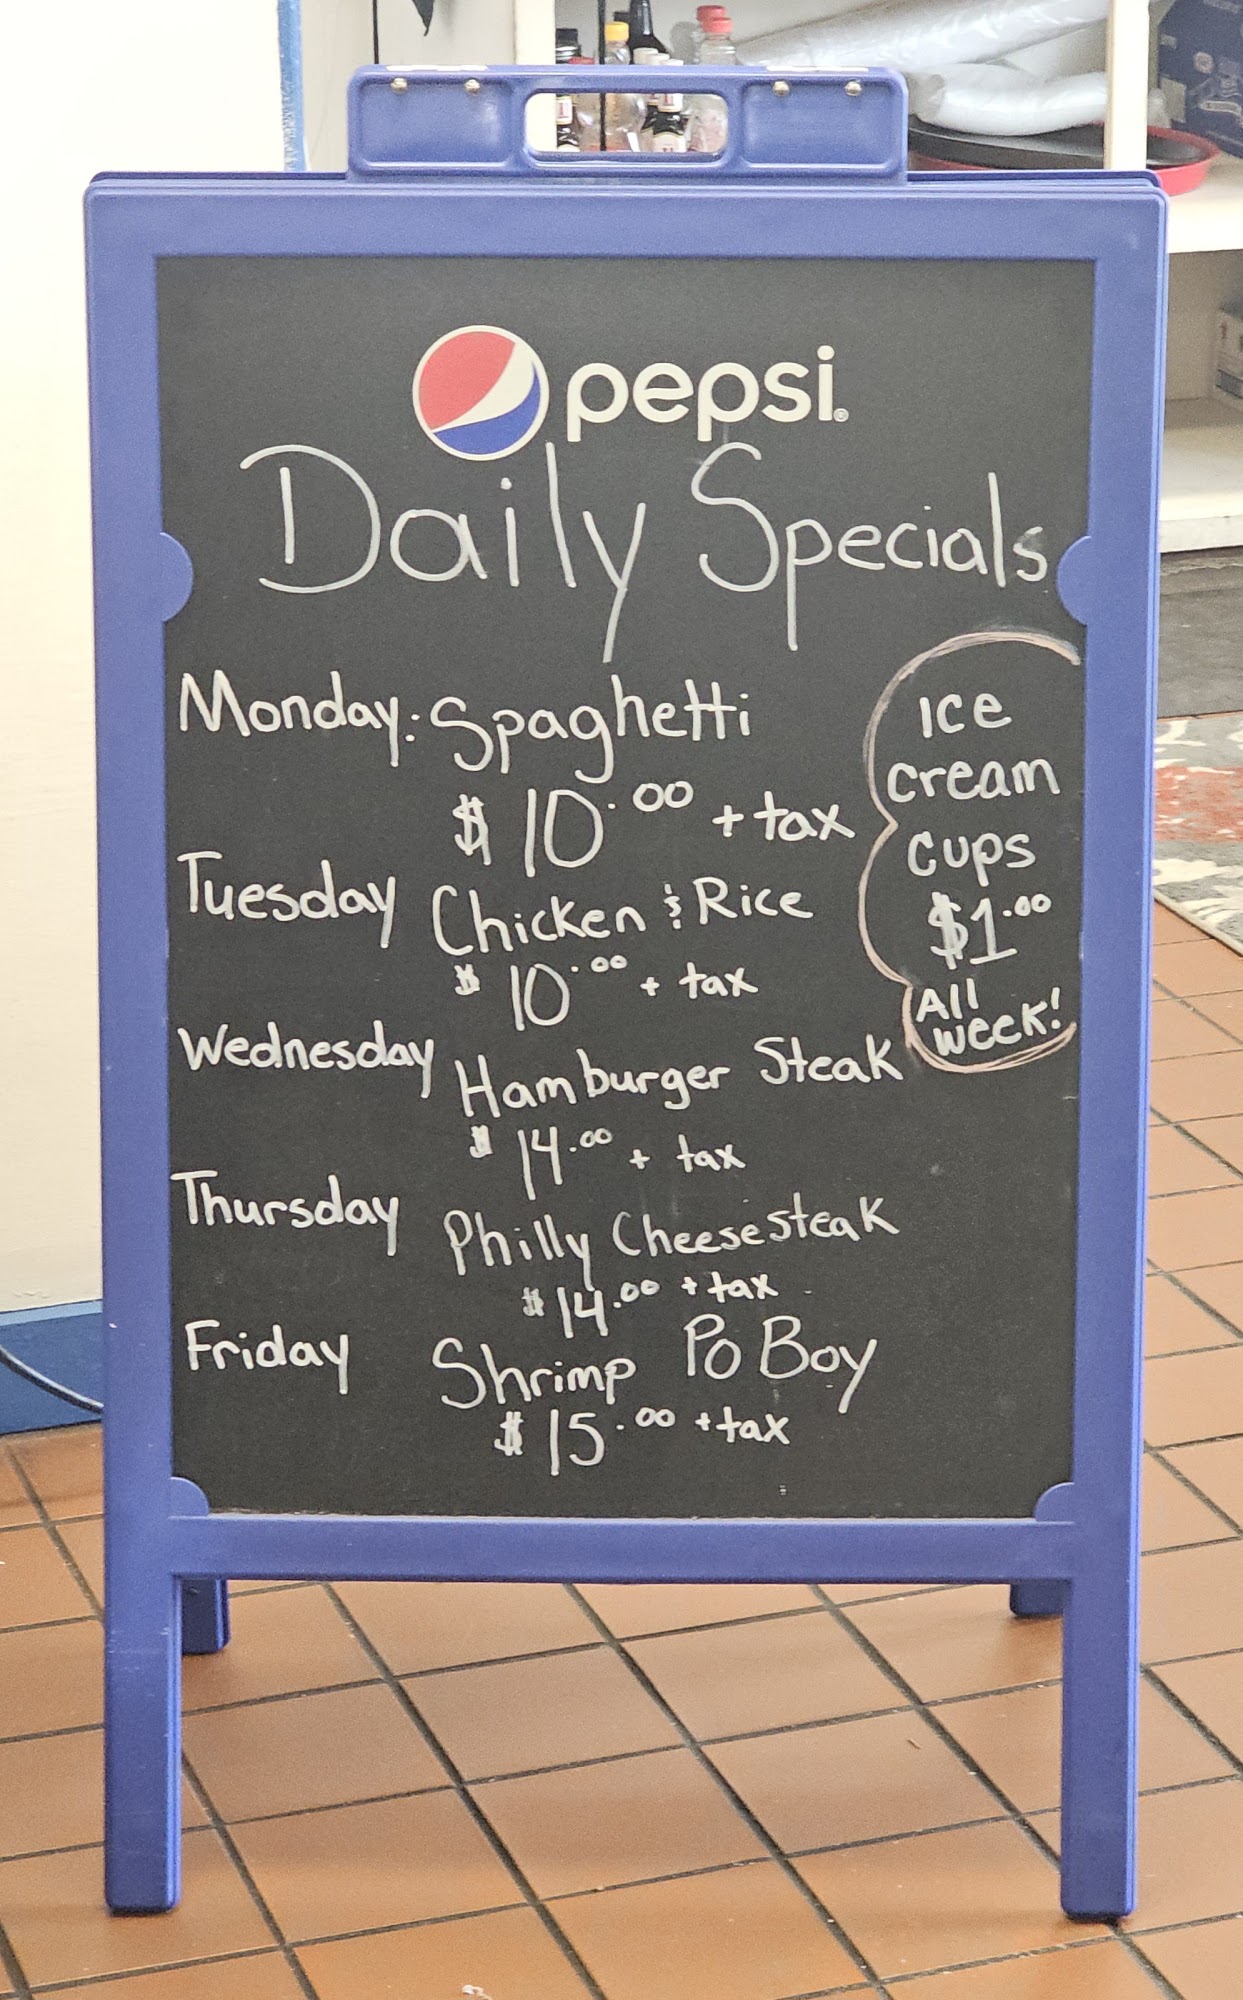 pepsi®
Daily Specials
Monday: Spaghetti
$10.00 + tax
Tuesday Chicken & Rice
$10.00 + tax
Wednesday Hamburger Steak
$14.00 + tax
Thursday Philly Cheesesteak
$14.00 + tax
Friday Shrimp Po Boy
$15.00 + tax
Ice
cream
cups
$1.00
All
week!